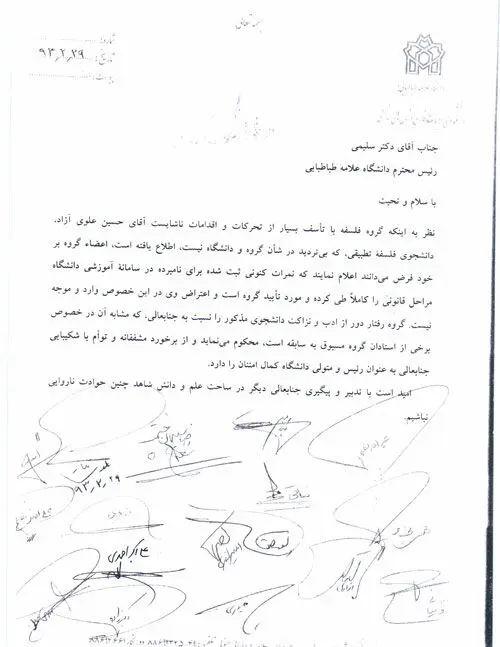 بسمه تعالی
شماره:
تاریخ: ۹۳٫۲٫۲۹
پیوست:
جناب آقای دکتر سلیمی
رئیس محترم دانشگاه علامه طباطبایی
با سلام و تحیت
نظر به اینکه گروه فلسفه با تأسف بسیار از تحرکات و اقدامات ناشایست آقای حسین علوی آزاد،
دانشجوی فلسفة تطبیقی، که بی‌تردید در شأن گروه و دانشگاه نیست، اطلاع یافته است، اعضاء گروه بر
خود فرض می‌دانند اعلام نمایند که نمرات کنونی ثبت شده برای نامبرده در سامانة آموزشی دانشگاه
مراحل قانونی را کاملاً طی کرده و مورد تأیید گروه است و اعتراض وی در این خصوص وارد و موجه
نیست. گروه رفتار دور از ادب و نزاکت دانشجوی مذکور را نسبت به جنابعالی، که مشابه آن در خصوص
برخی از استادان گروه مسبوق به سابقه است، محکوم می‌نماید و از برخورد مشفقانه و توأم با شکیبایی
جنابعالی به عنوان رئیس و متولی دانشگاه کمال امتنان را دارد.
امید است با تدبیر و پیگیری جنابعالی دیگر در ساحت علم و دانش شاهد چنین حوادث ناروایی
نباشیم.
۹۳٫۲٫۲۹
علی اکبر احمدی